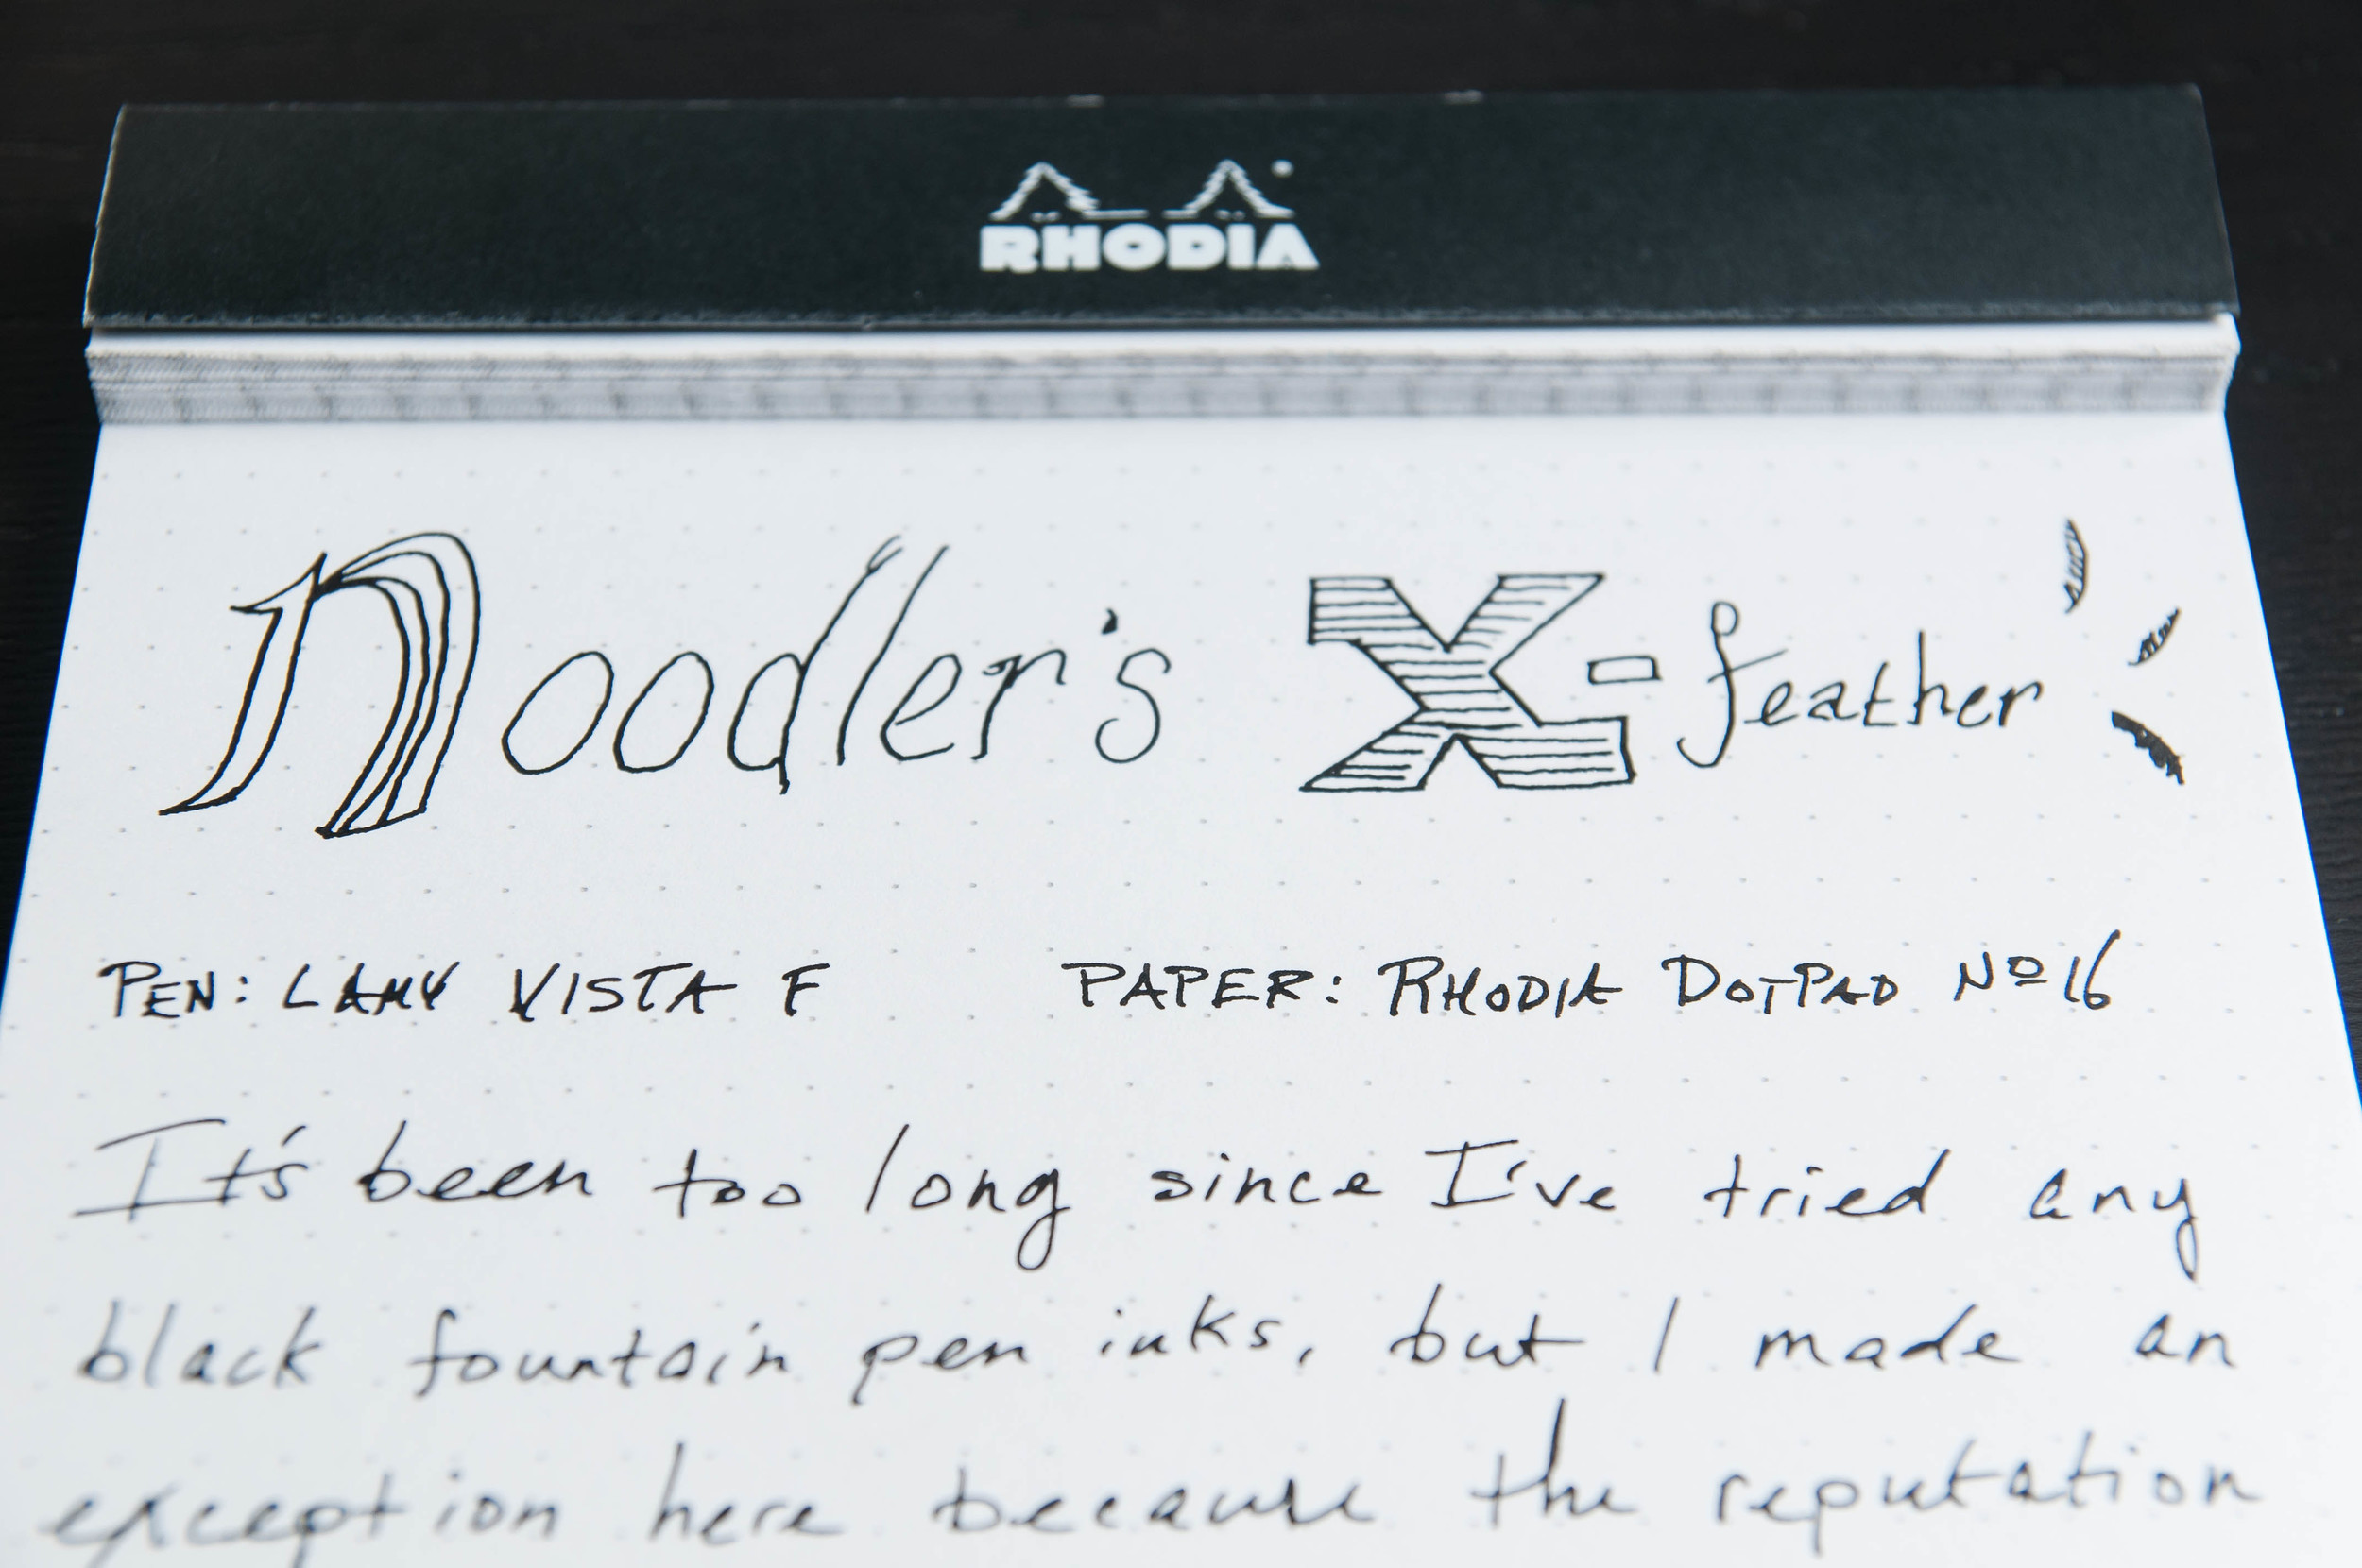 RHODIA
Noodler's X-feather
PEN: LAMY VISTA F PAPER: RHODIA DOTPAD Nº16
It's been too long since I've tried any
black fountain pen inks, but I made an
exception here because the reputation